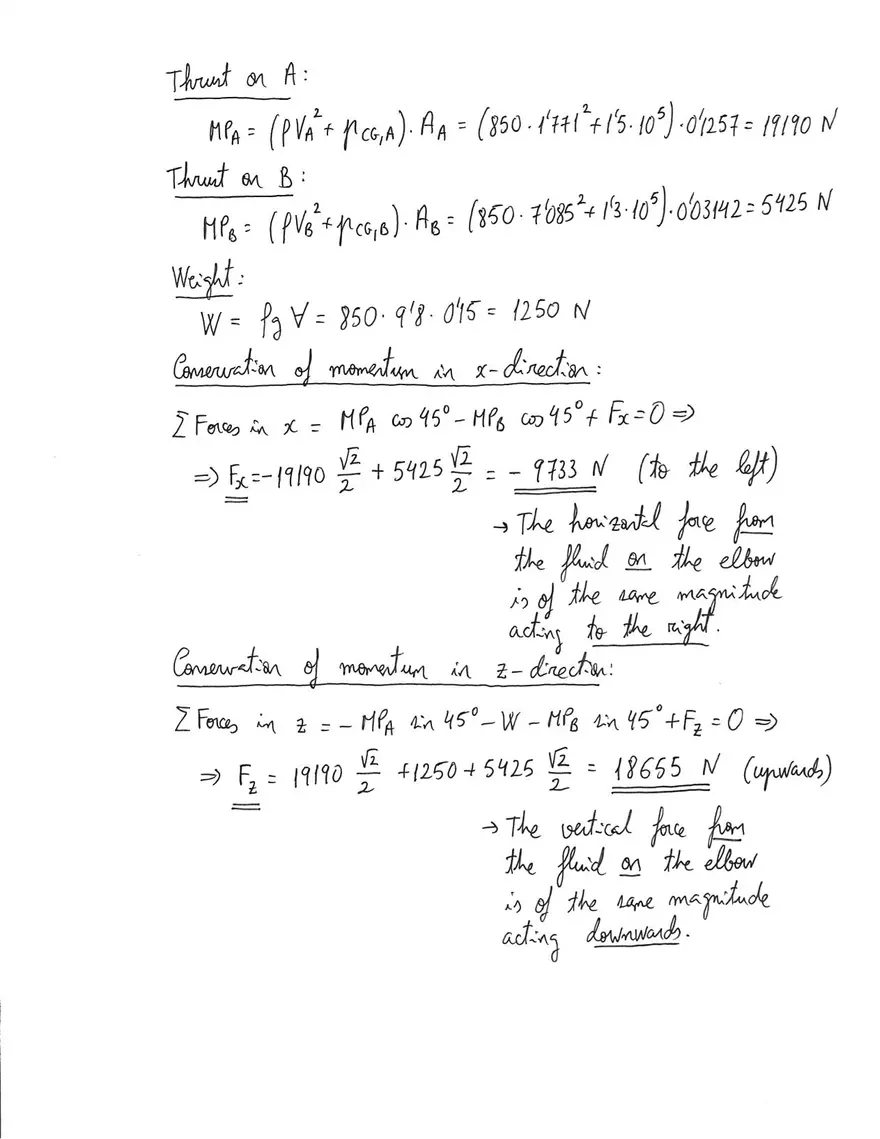 Thrust on A:
MP_A = (ρV_A² + p_CG,A) · A_A = (850 · 1'771² + 1'5 · 10⁵) · 0'1257 = 19190 N
Thrust on B:
MP_B = (ρV_B² + p_CG,B) · A_B = (850 · 7'085² + 1'3 · 10⁵) · 0'03142 = 5425 N
Weight:
W = ρg∀ = 850 · 9'8 · 0'15 = 1250 N
Conservation of momentum in x-direction:
Σ Forces in x = MP_A cos 45° - MP_B cos 45° + Fx = 0 ⇒
⇒ Fx = -19190 √2/2 + 5425 √2/2 = - 9733 N (to the left)
→ The horizontal force from
the fluid on the elbow
is of the same magnitude
acting to the right.
Conservation of momentum in z-direction:
Σ Forces in z = - MP_A sin 45° - W - MP_B sin 45° + F_z = 0 ⇒
⇒ F_z = 19190 √2/2 + 1250 + 5425 √2/2 = 18655 N (upwards)
→ The vertical force from
the fluid on the elbow
is of the same magnitude
acting downwards.